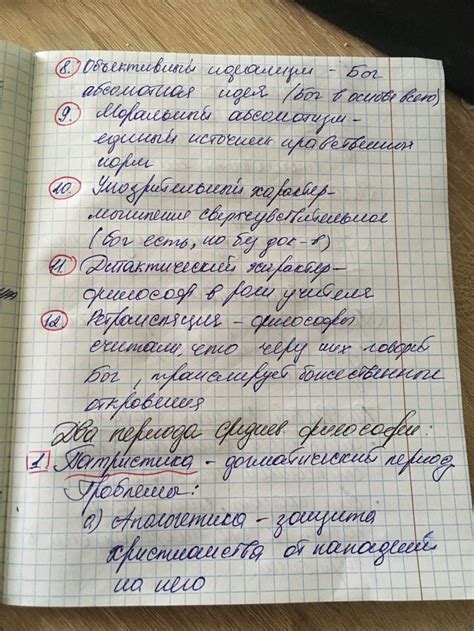 8. Объективный идеализм – Бог
абсолютная идея (Бог в основе всего)
9. Моральный абсолютизм –
единый источник нравственных
норм
10. Умозрительный характер –
мышление сверхчувствительное
(Бог есть, но без док-в)
11. Дидактический характер –
философ в роли учителя
12. Ретрансляция – философы
считали, что через них говорит
Бог, транслирует божественные
откровения
Два периода средне философии:
1. Патристика – догматический период
Проблемы:
а) Апологетика – защита
христианства от нападений
на него